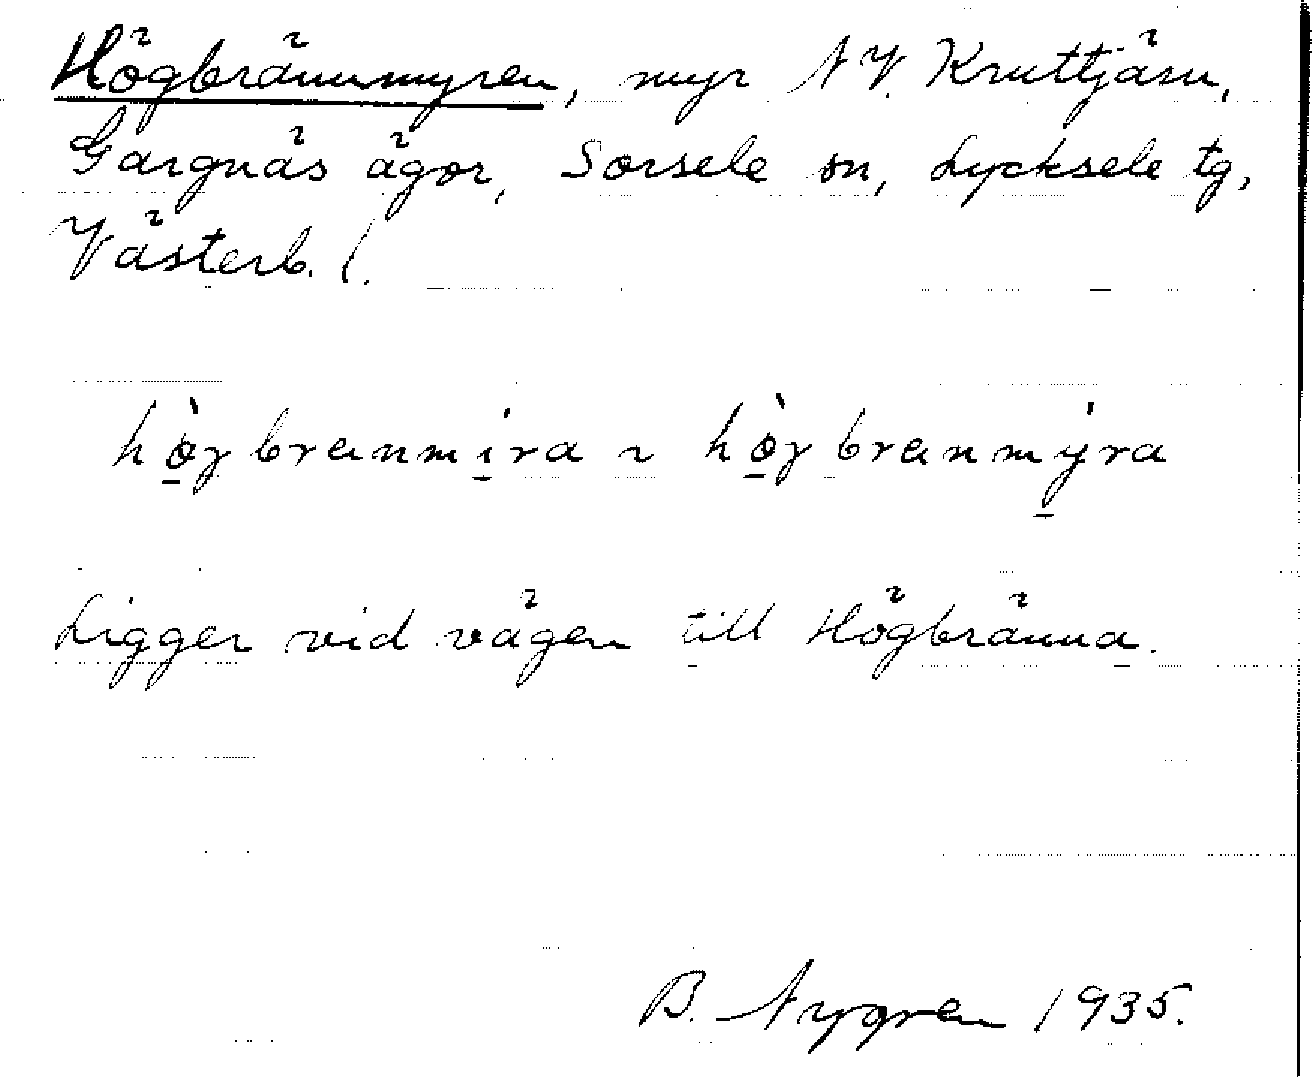 Högbrännmyren, myr NV. Kruttjärn,
Gargnäs ägor, Sorsele sn, Lycksele tg,
Västerb. l.
hö̀gbrenmira ~ hö̀gbrenmyra
Ligger vid vägen till Högbränna.
B. Nygren 1935.